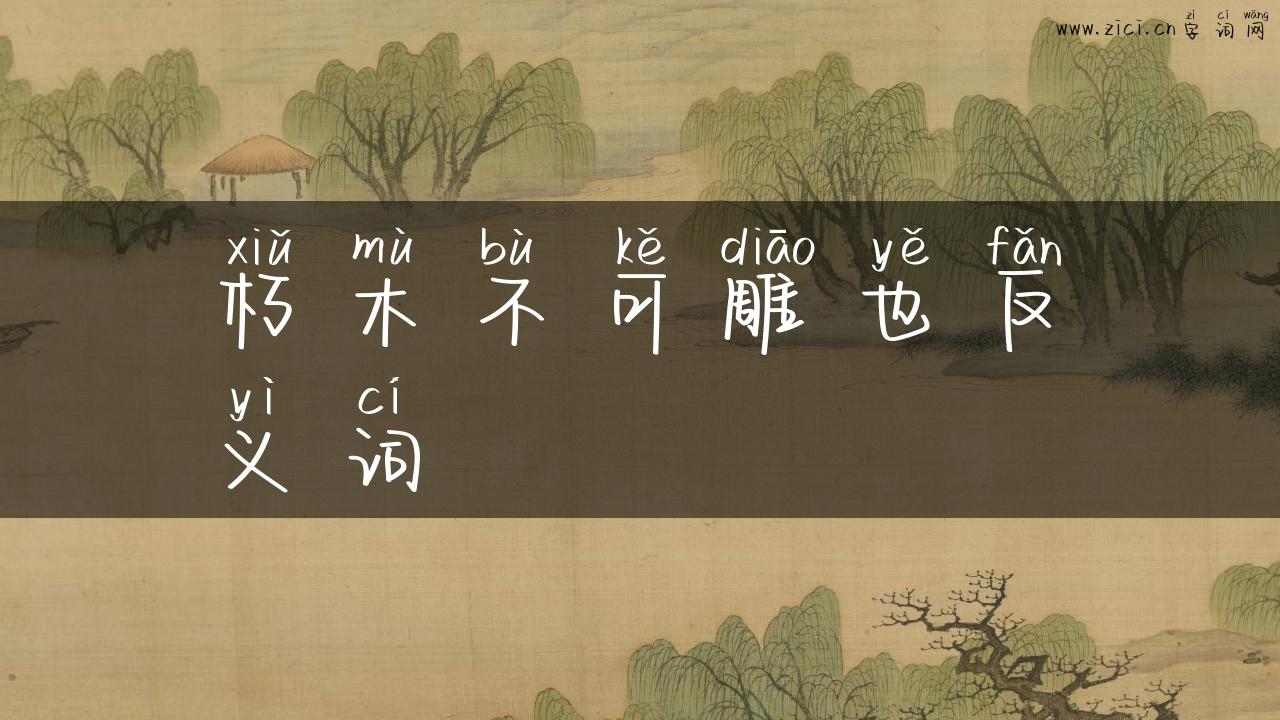 zì cí wǎng
www.zici.cn 字词网
xiǔ mù bù kě diāo yě fǎn
朽木不可雕也反
yì cí
义词